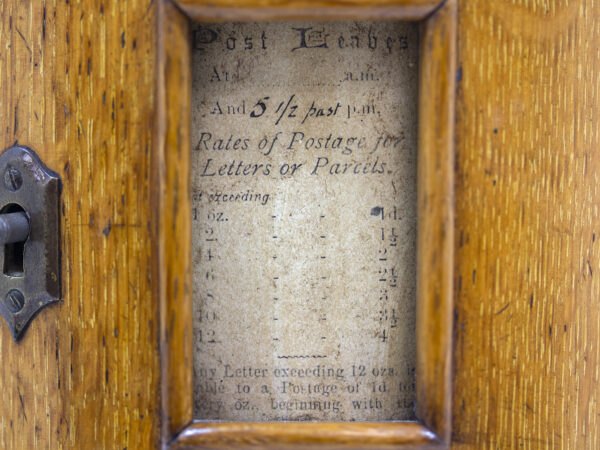 Post Leaves
At ............ a.m.
And 5 1/2 past p.m.
Rates of Postage for
Letters or Parcels.
exceeding
1 oz. - - 1d.
2. - - 1½
4. - - 2
6 - - 2½
8 - - 3
10. - - 3½
12. - - 4
Any Letter exceeding 12 ozs. is
to a Postage of 1d for
every oz., beginning with the